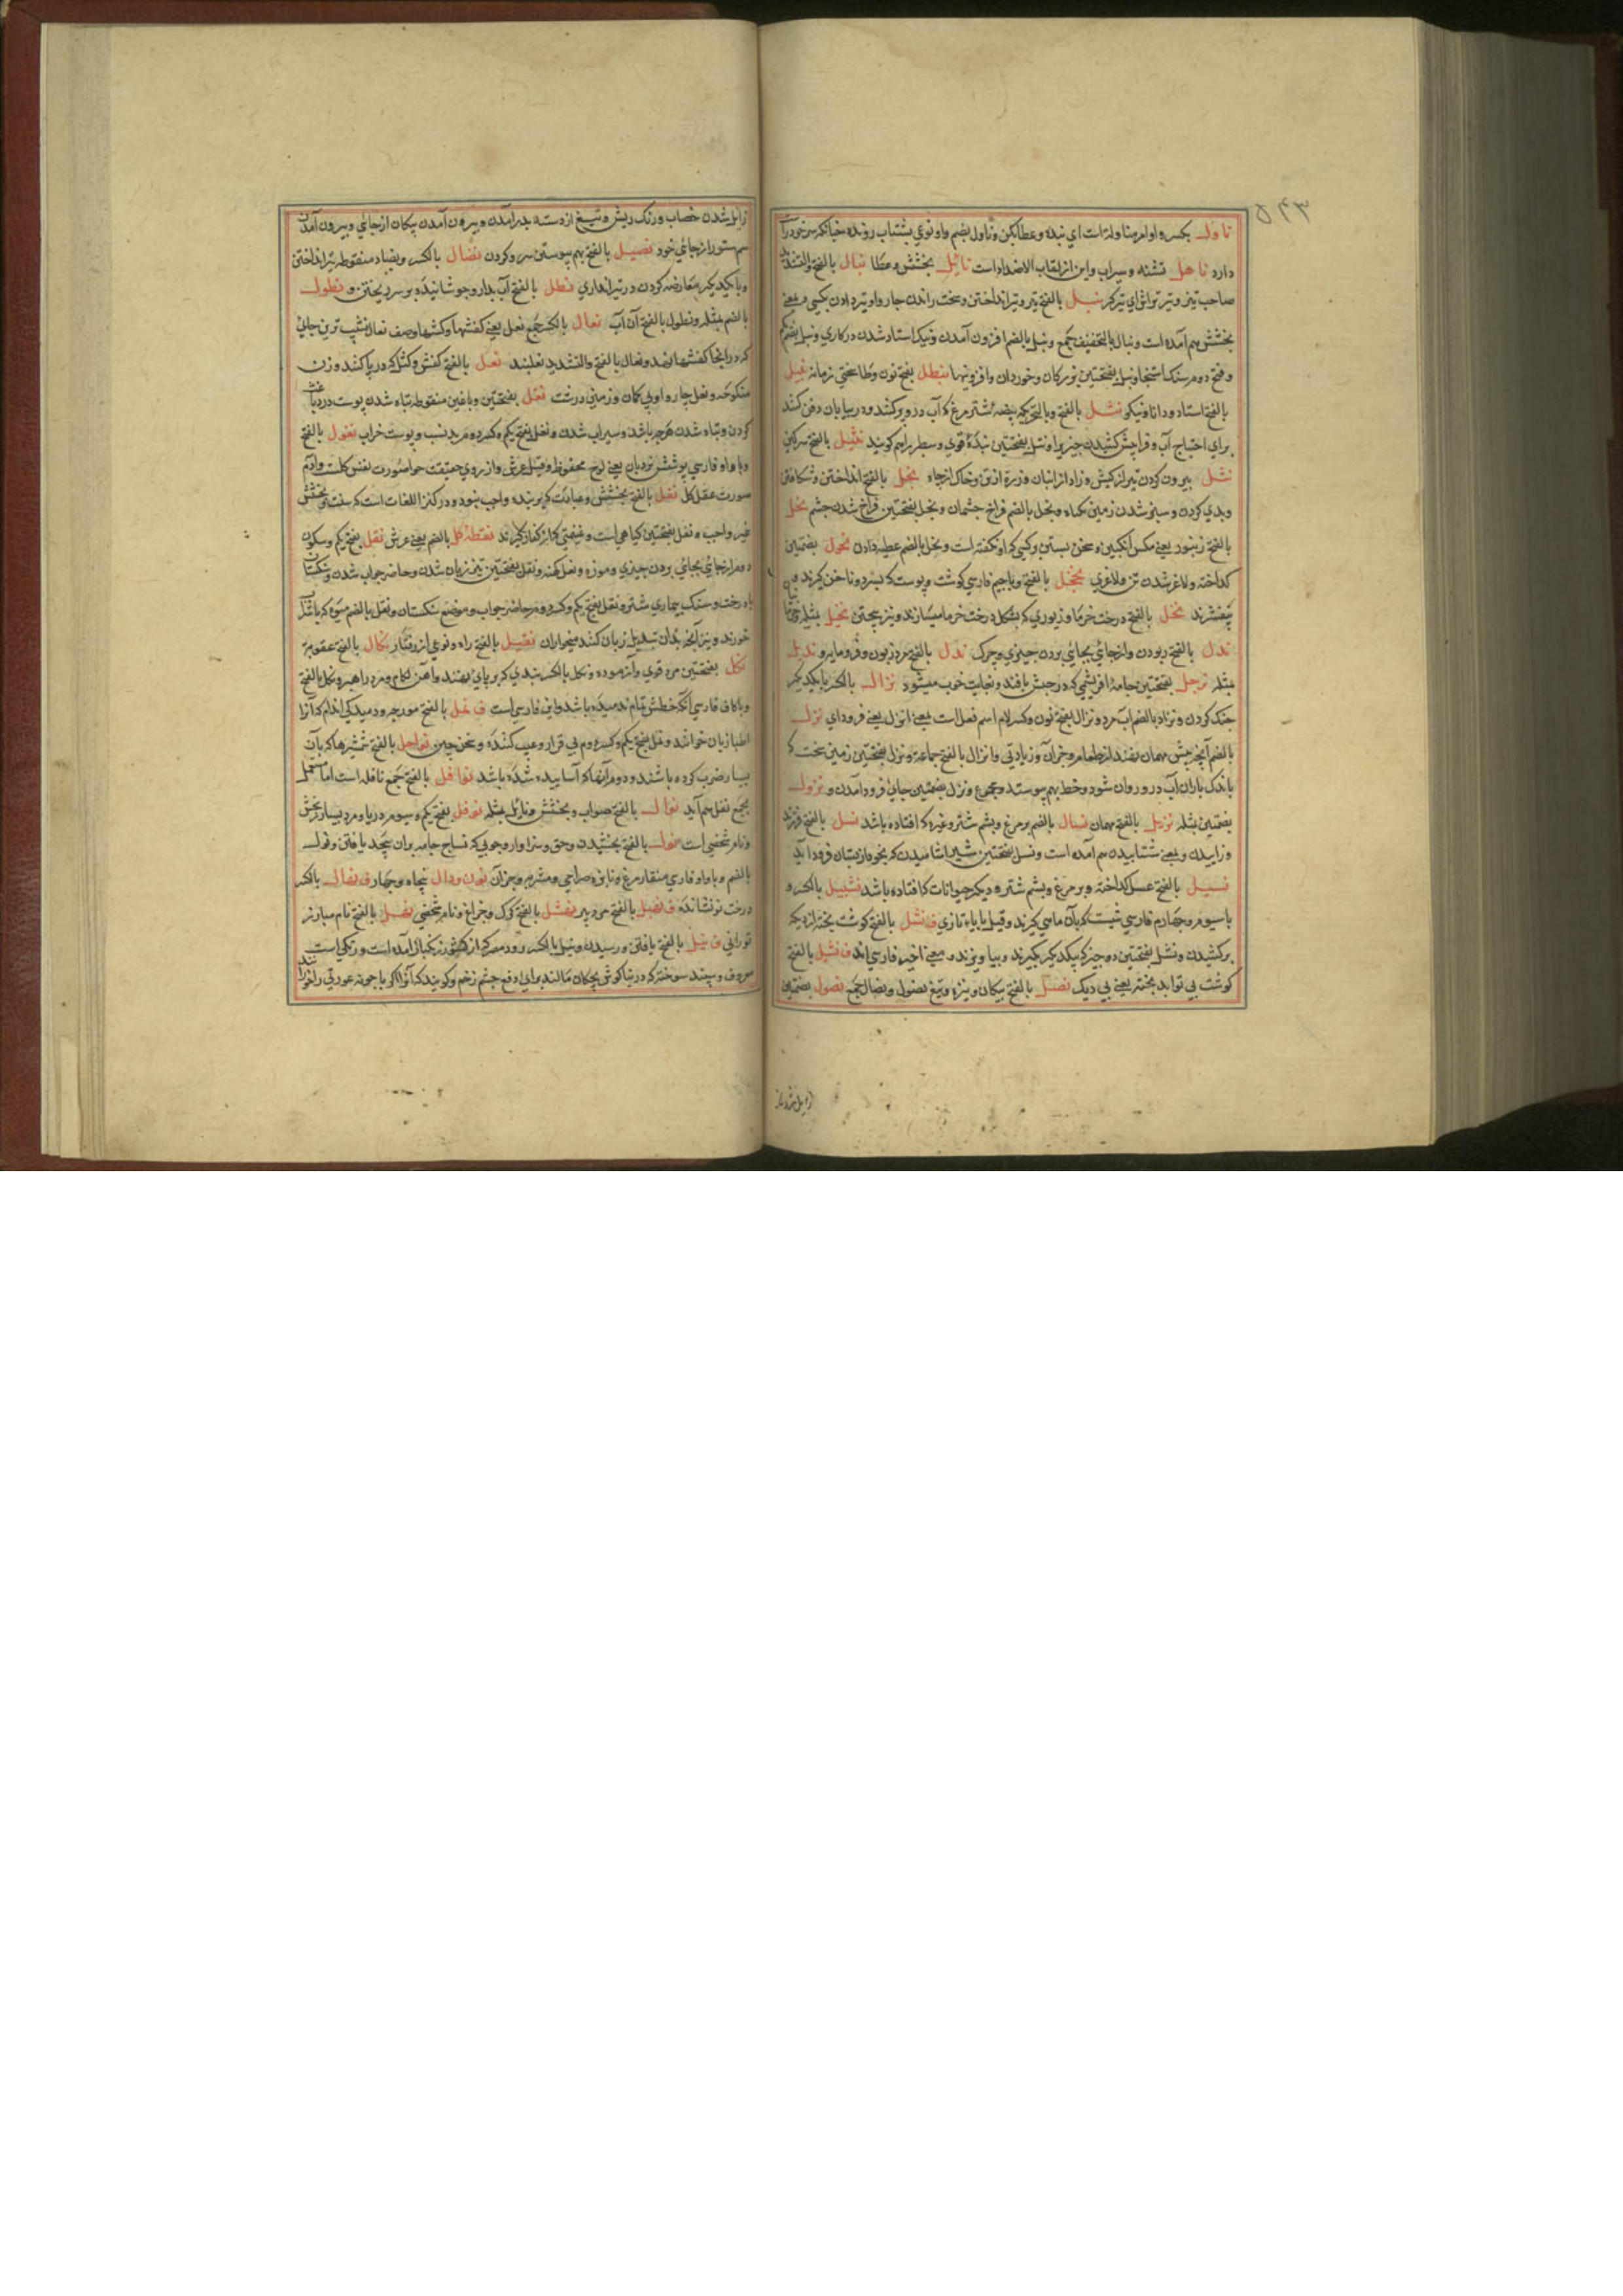 ۵۴۳
ناول بکسر واو امر مناوله است ای بده و عطا بکن و ناول بضم واو نوعی بشتاب رونده چنانکه سر خود را
دارد ناهل تشنه و سیراب و این از لقاب الاضداد است نائل بخشش و عطا نبال بالفتح والتشدید
صاحب تیر و تیر تراش ای تیرگر نبل بالفتح تیر و تیر انداختن و سخت راندن چاروا و تیر دادن بکسی و بمعنی
بخشش هم آمده است و نبال بالتخفیف جمع و نبل بالضم افزون آمدن و نیک استاد شدن در کاری و نبل بضم یکم
و فتح دوم سنک استنجا و نبل بفتحتین بزرکان و خوردان و افزونیها نیطل بفتح نون و طا سختی زمانه نبیل
بالفتح استاد و دانا و نیکو نتل بالفتح و بالتحریک بیضه شتر مرغ که آب درو پر کنند و در بیابان دفن کنند
برای احتیاج آب و فرا پیش کشیدن چیزیرا و نتل بفتحتین بنده قوی و سطبر را هم کویند نثیل بالفتح سرکین
نثل بیرون کردن تیر از کیش و زاد از انبان و زره از تن و خاک از چاه نجل بالفتح انداختن و شکافتن
و بدی کردن و سبز شدن زمین بکیاه و نجل بالضم فراخ چشمان و نجل بفتحتین فراخ شدن چشم نحل
بالفتح زنبور یعنی مکس انکبین و سخن بستن بر کسی که او نکفته است و نحل بالضم عطیه دادن نحول بضمتین
کداخته و لاغر شدن تن و لاغری نخجل بالفتح و باجیم فارسی کوشت و پوست که بسر دو ناخن کیرند و
بیفشرند نخل بالفتح درخت خرما و زیوری که بشکل درخت خرما میسازند و نیز بیختن نخیل مثله
ندل بالفتح ربودن و از جائی بجائی بردن چیزی و چرک نذل بالفتح مرد زبون و فرومایه و نذیل
مثله نرجل بفتحتین جامه ابریشمی که در حبش بافند و بغایت خوب میشود نزال بالکسر با یکدیکر
جنک کردن و نزاد بالضم آب مرد و نزال بفتح نون و کسر لام اسم فعل است بمعنی انزل یعنی فرود آی نزل
بالضم آنچه پیش مهمان نهند از طعام و جز آن و زیادتی و انزال بالفتح جماعة و نزل بفتحتین زمین سخت که
باندک باران آب درو روان شود و خط بهم پیوسته و مجموع و نزل بضمتین جای فرود آمدن و نزول
بضمتین مثله نزیل بالفتح مهمان نسال بالضم پر مرغ و پشم شتر و غیره که افتاده باشد نسل بالفتح فرزند
و زاییدن و بمعنی شتابیدن هم آمده است و نسل بفتحتین شیر اشامیدن که بخود از پستان فرود آید
نسیل بالفتح عسل کداخته و پر مرغ و پشم شتر و دیکر حیوانات که افتاده باشد نشبیل بالکسر و
باسیوم و چهارم فارسی شست که بآن ماهی کیرند و قیل با باء تازی ف نشل بالفتح کوشت پخته از دیک
برکشیدن و نشل بفتحتین دو چیز که بیکدیکر بکیرند و بیاویزند و بمعنی اخیر فارسی اند ف نشیل بالفتح
کوشت بی توابل پخته یعنی بی دیک نصل بالفتح پیکان و نیزه و تیغ نصول و نصال جمع نصول بضمتین
زایل شدن
زایل شدن خضاب و رنک ریش و تیغ از دسته بدر آمدن و بیرون آمدن پیکان از جائی و بیرون آمدن
سم ستور از جای خود نصیل بالفتح بهم پیوستن سر و کردن نضال بالکسر و بضاد منقوطه تیر انداختن
و با یکدیکر معارضه کردن در تیر اندازی نطل بالفتح آب بدارو جوشانیده بر سر ریختن و نطول
بالضم مثله و نطول بالفتح آن آب نعال بالکسر جمع نعل یعنی کفشها و کشها و صف نعال نشیب ترین جای
که در آنجا کفشها نهند و نعال بالفتح والتشدید نعلبند نعل بالفتح کفش و کش که در پا کنند و زن
منکوحه و نعل چاروا و پی کمان و زمین درشت نغل بفتحتین و باغین منقوطه تباه شدن پوست در دباغت
کردن و تباه شدن هر چه باشد و سیراب شدن و نغل بفتح یکم و کسر دوم بد نسب و پوست خراب نغول بالفتح
و با واو فارسی پوشش نردبان یعنی لوح محفوظ و قیل عرش و از روی حقیقت حوا صورت نفس کلست و آدم
صورت عقل کل نفل بالفتح بخشش و عبادت که بر بنده واجب نبود و در کنز اللغات است که سنت و بخشش
غیر واجب و نفل بفتحتین کیاهی است و غنیمتی که از کفار کیرند نقطه کل بالضم یعنی عرش نقل بفتح یکم و سکون
دوم از جائی بجائی بردن چیزی و موزه و نعل کهنه و نقل بفتحتین تیز زبان شدن و حاضر جواب شدن و شکستن
درخت و سنک بیماری شتر و نقل بفتح یکم و کسر دوم حاضر جواب و موضع سنکستان و نقل بالضم میوه که با شراب
خورند و نیز آنچه بدان تبدیل زبان کنند میخواران نقیل بالفتح راه و نوعی از رفتار نکال بالفتح عقوبة
نکل بفتحتین مرد قوی و آزموده و نکل بالکسر بندی که بر پای نهند و آهن لکام و مرد راهبر و نکل بالفتح
و با کاف فارسی آنکه خطش تمام ندمیده باشد و این فارسی است ف نمل بالفتح مورچه و دمیدکی اندام که آنرا
اطبا زبان خوانند و نمل بفتح یکم و کسر دوم بی قرار و عیب کننده و سخن چین نواحل بالفتح شمشیرها که بآن
بسیار ضرب کرده باشند و دوم آنها که آساییده شده باشد نوافل بالفتح جمع نافله است اما مستعمل
بجمع نفل هم آید نوال بالفتح صواب و بخشش و نائل مثله نوفل بفتح یکم و سیوم دریا و مرد بسیار بخش
و نام شخصی است نول بالفتح بخشیدن و حق و سزاوار و چوبی که نساج جامه بران پیچد یافتن و نول
بالضم و با واو فارسی منقار مرغ و نایژه صراحی و مشربه و جز آن نون و دال پنجاه و چهار ف نهال بالکسر
درخت نو نشانده ف نهبل بالفتح مرد پیر نهشل بالفتح کرک و چراغ و نام شخصی نهل بالفتح نام مبارز
تورانی ف نیل بالفتح یافتن و رسیدن و نیل بالکسر رود مصر که از کشور زنکبار آمده است و رنکی است
معروف و سپند سوخته که در بناکوش بچکان مالند برای دفع چشم زخم و کویند که آنرا اکر با جوبه عورتی را خورانند